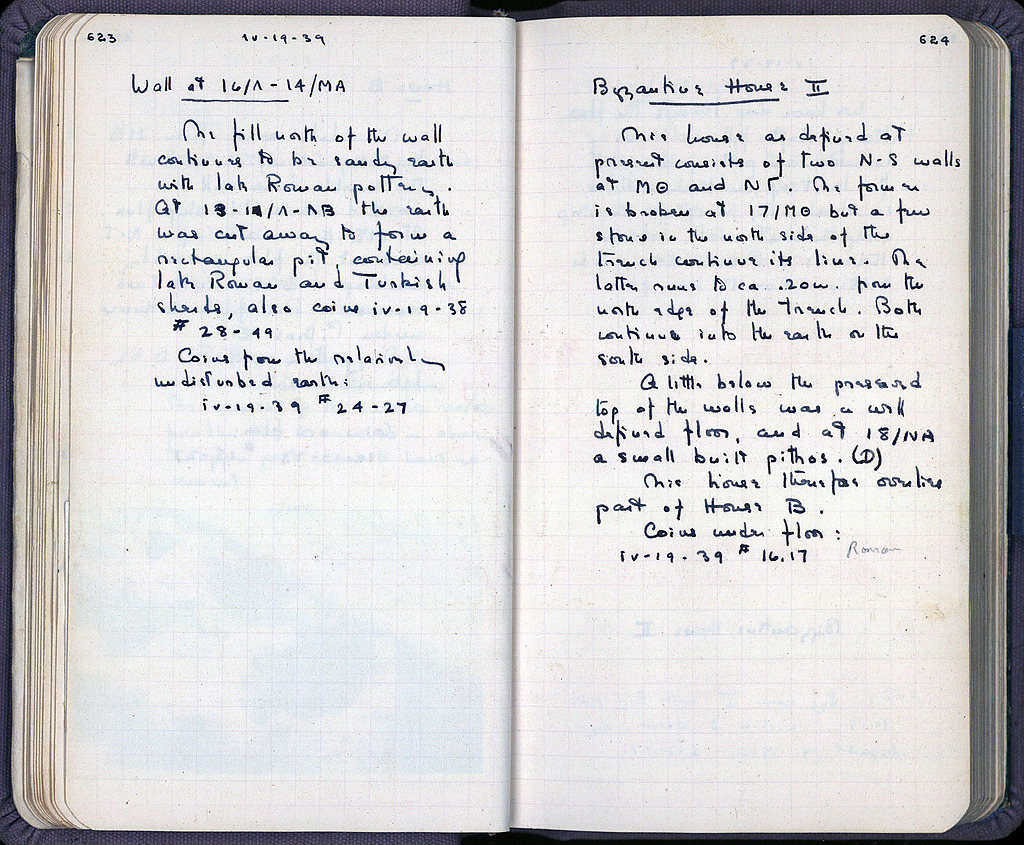 623
iv-19-39
Wall at 16/Λ-14/ΜΑ
The fill north of the wall
continues to be sandy earth
with late Roman pottery.
At 13-14/Λ-ΛΒ the earth
was cut away to form a
rectangular pit, containing
late Roman and Turkish
sherds, also coins iv-19-38
# 28-49
Coins from the relatively
undisturbed earth:
iv-19-39 # 24-27
624
Byzantine House II
This house as defined at
present consists of two N-S walls
at ΜΘ and ΝΓ. The former
is broken at 17/ΜΘ but a few
stones in the north side of the
trench continue its line. The
latter runs to ca .20m. from the
north edge of the trench. Both
continue into the earth on the
south side.
A little below the preserved
top of the walls was a well
defined floor, and at 18/ΝΑ
a small built pithos. (D)
This house therefore overlies
part of House B.
Coins under floor:
iv-19-39 # 16.17
Roman